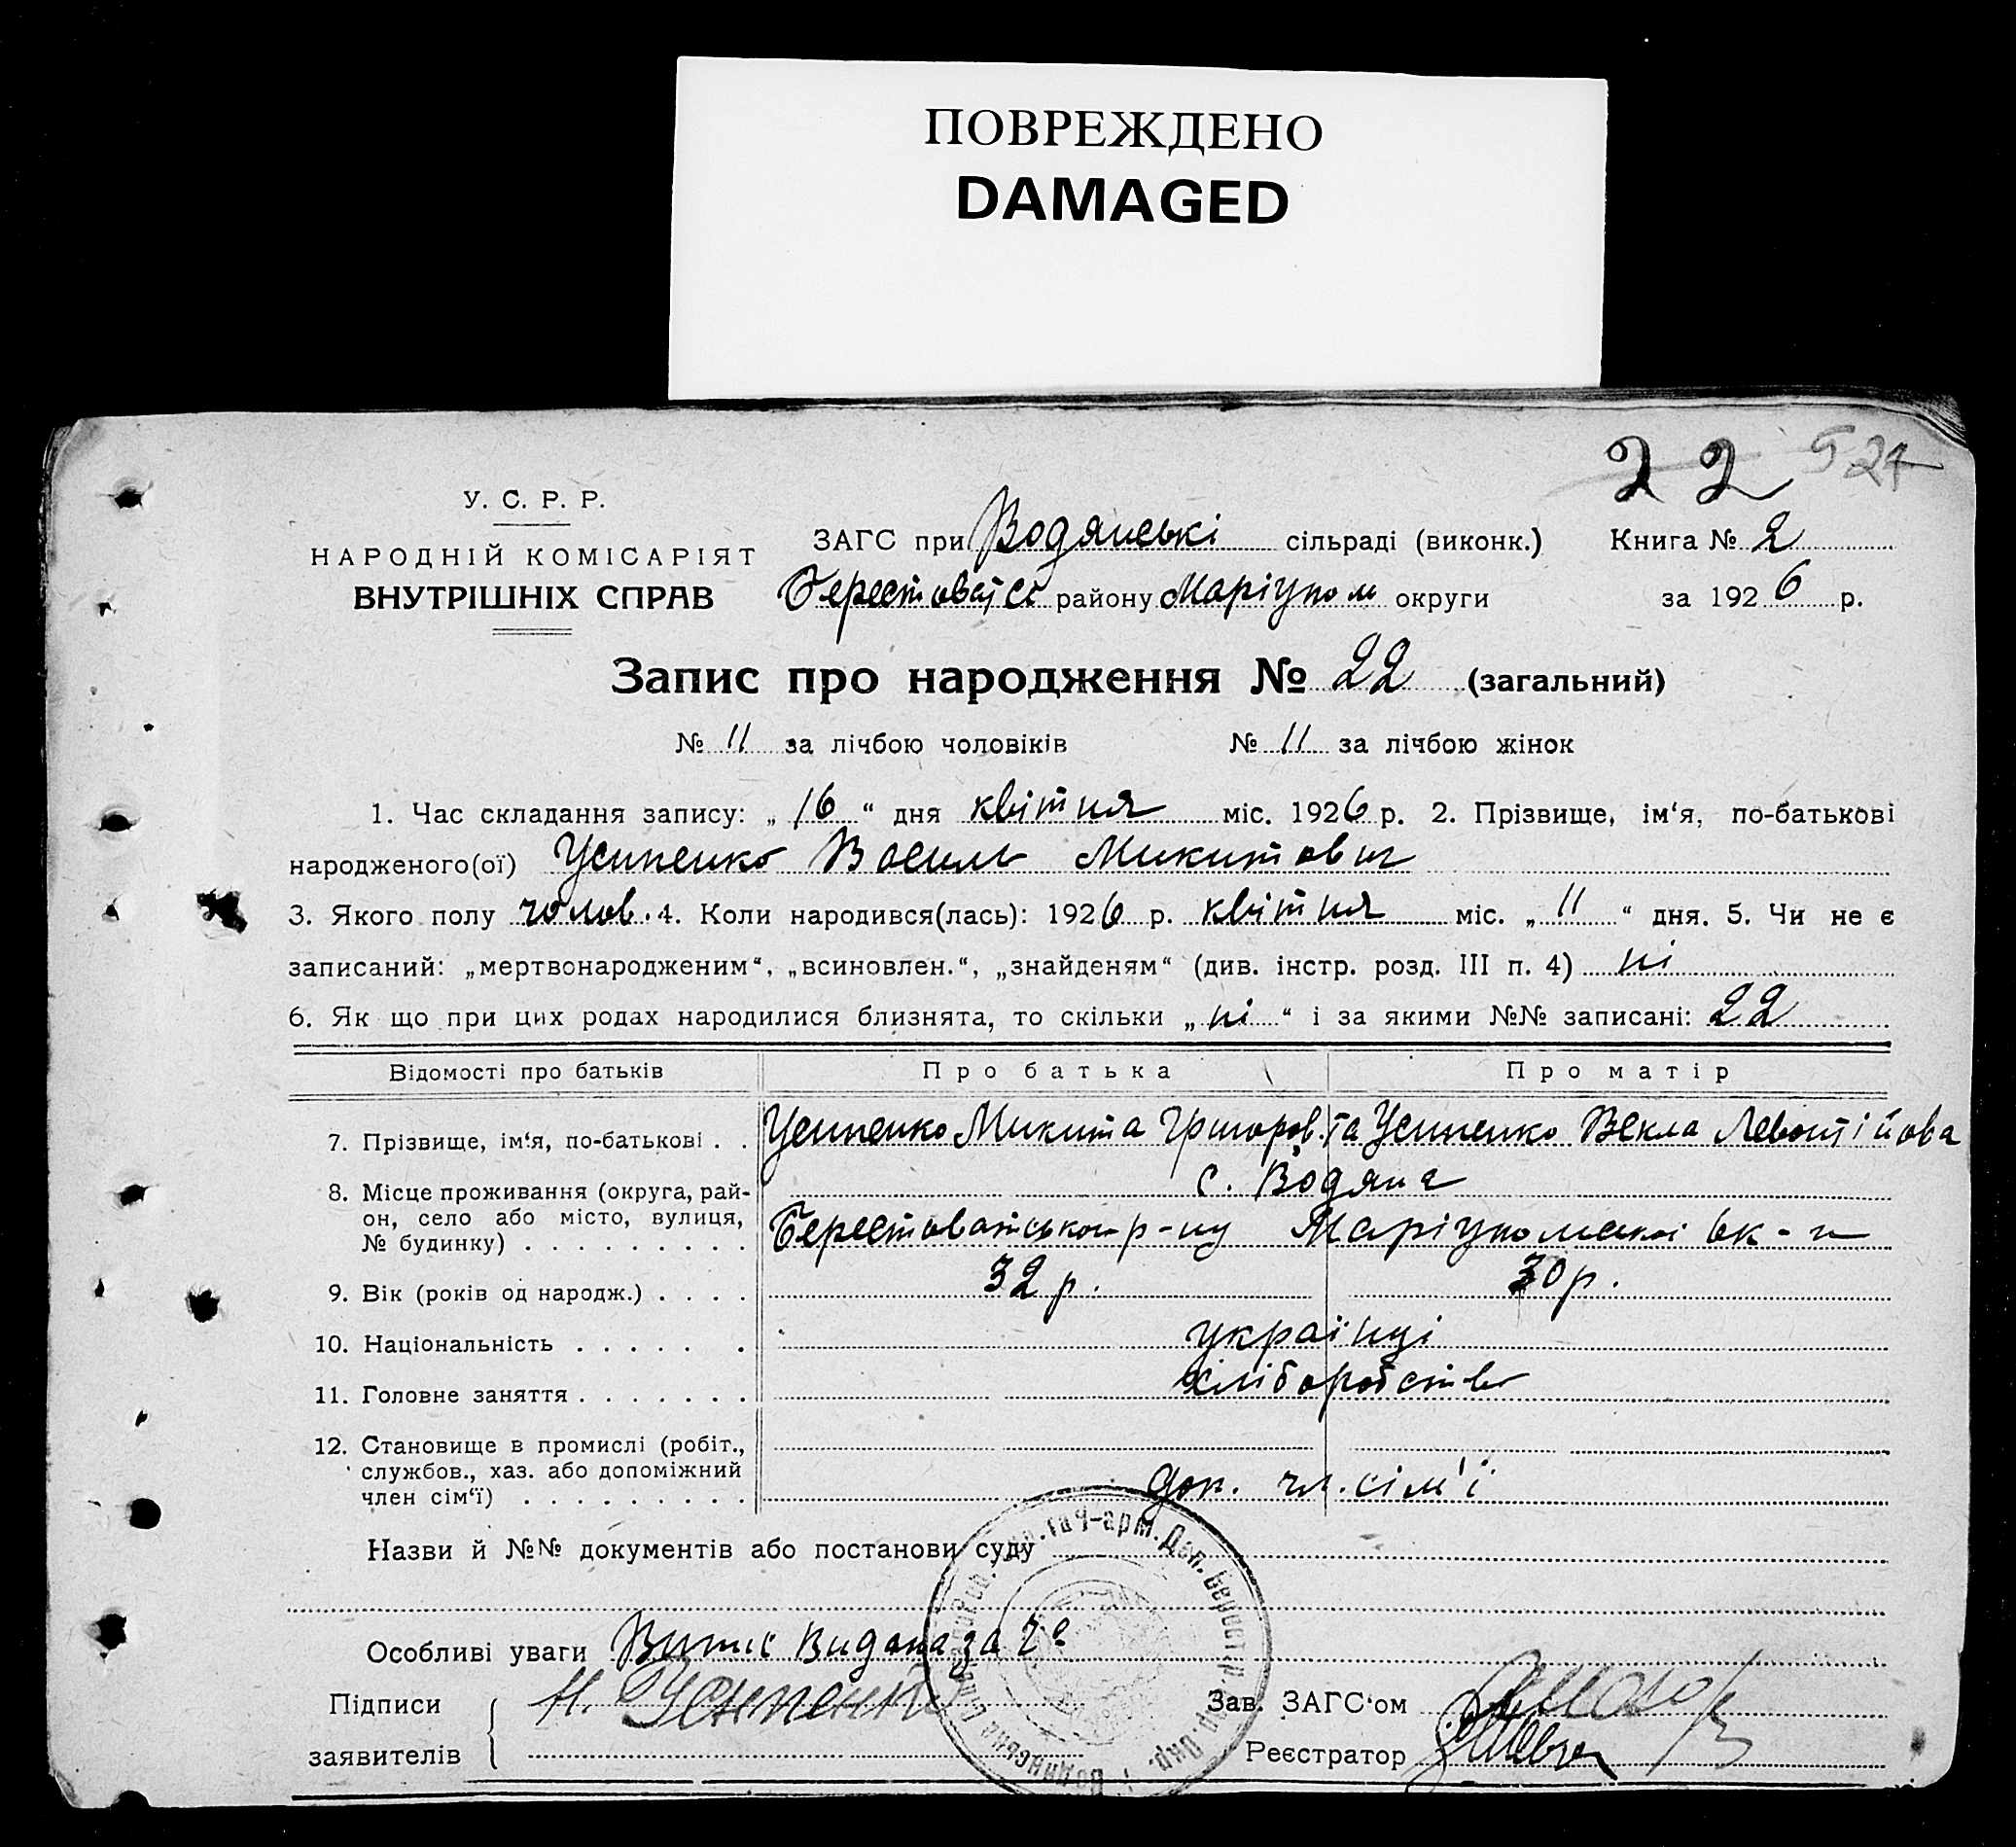 ПОВРЕЖДЕНО
DAMAGED
22 524
У. С. Р. Р.
НАРОДНІЙ КОМІСАРІЯТ
ВНУТРІШНІХ СПРАВ
ЗАГС при Водянські сільраді (виконк.) Книга № 2
району Маріупол округи за 1926 р.
Запис про народження № 22 (загальний)
№ 11 за лічбою чоловіків № 11 за лічбою жінок
1. Час складання запису: „16“ дня квітня міс. 1926 р. 2. Прізвище, ім‘я, по-батькові
народженого(ої) Усипенко Василь Микитович
3. Якого полу чолов. 4. Коли народився(лась): 1926 р. квітня міс. „11“ дня. 5. Чи не є
записаний: „мертвонародженим“, „всиновлен.“, „знайденям“ (див. інстр. розд. III п. 4) ні
6. Як що при цих родах народилися близнята, то скільки „ні“ і за якими №№ записані: 22
Відомості про батьків Про батька Про матір
7. Прізвище, ім‘я, по-батькові . . Усипенко Микита Григоров. та Усипенко Векла Левонтійова
8. Місце проживання (округа, рай- с. Водяна
он, село або місто, вулиця,
№ будинку) . . . . . . . . . Берестоватського р-ну Маріупольської ок-и
9. Вік (років од народж.) . . . . 32 р. 30 р.
10. Національність . . . . . . українці
11. Головне заняття . . . . . . . хліборобство
12. Становище в промислі (робіт.,
службов., хаз. або допоміжний
член сім‘ї) . . . . . . . . . доп. чл. сім'ї
Назви й №№ документів або постанови суду
Особливі уваги Випис видана за №
Підписи Н. Усипенко Зав. ЗАГС‘ом
заявителів Реєстратор